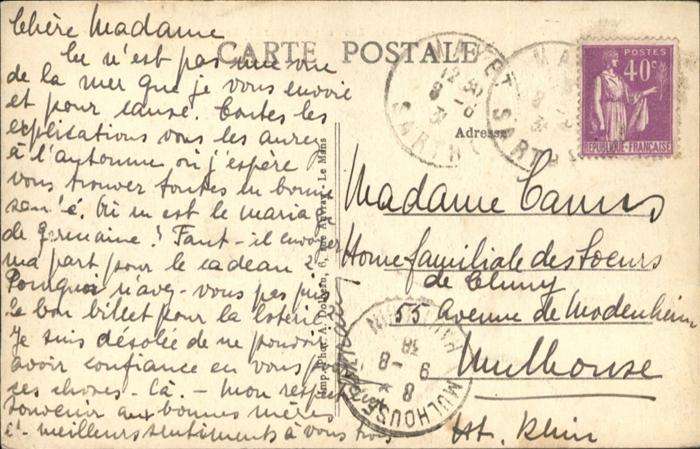 Chère Madame
CARTE POSTALE
Ce n'est pas une vue
de la mer que je vous envoie
et pour cause. Toutes les
explications vous les aurez
à l'automne où j'espère
vous trouver toutes en bonne
san'é. Où en est le maria
de Germaine! Faut-il envoyer
ma part pour le cadeau?
Pourquoi n'avez-vous pas pris
le bon billet pour la loterie
Je suis désolée de ne pouvoir
avoir confiance en vous p
ces choses-Là.- mon respect
souvenir aux bonnes mères
et meilleurs sentiments à vous trois
Imp. Phot. A. 6, rue Auvray, Le Mans
MAYET
SARTHE
12 30
8 -8
SARTHE
POSTES
40c
REPUBLIQUE-FRANÇAISE
Adresse
Madame Camus
Home familiale des Soeurs
de Cluny
55 avenue de Modenheim
Mulhouse
Ht. Rhin
MULHOUSE
HAUT-RHIN